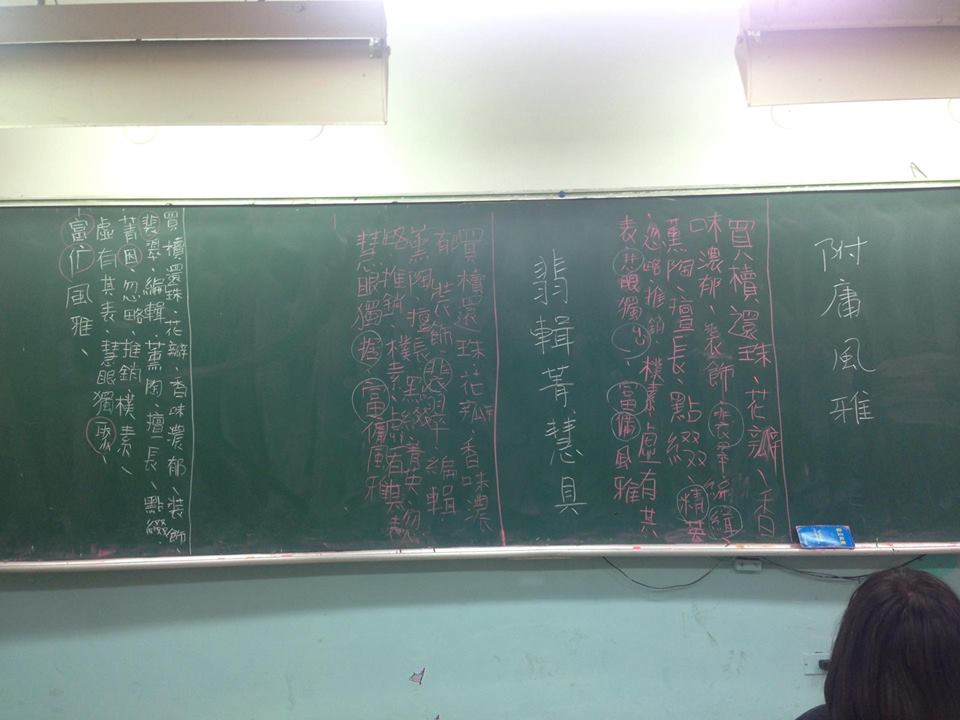 附庸風雅
買櫝還珠、花瓣、香
味濃郁、裝飾、編緝
薰陶、擅長、點綴、精英
忽略、推銷、樸素虛有其
表慧眼獨出、富傭風雅
翡輯菁慧具
買櫝還珠花瓣香味濃
郁裝飾翡翠編輯
薰陶擅長點綴菁英忽
略推銷樸素虛有其表
慧眼獨富傭風雅
買櫝還珠、花瓣、香味濃郁、裝飾、
翠、編輯、薰陶、擅長、點綴
菁、忽略、推銷樸素、
虛有其表、慧眼獨
富仁風雅、